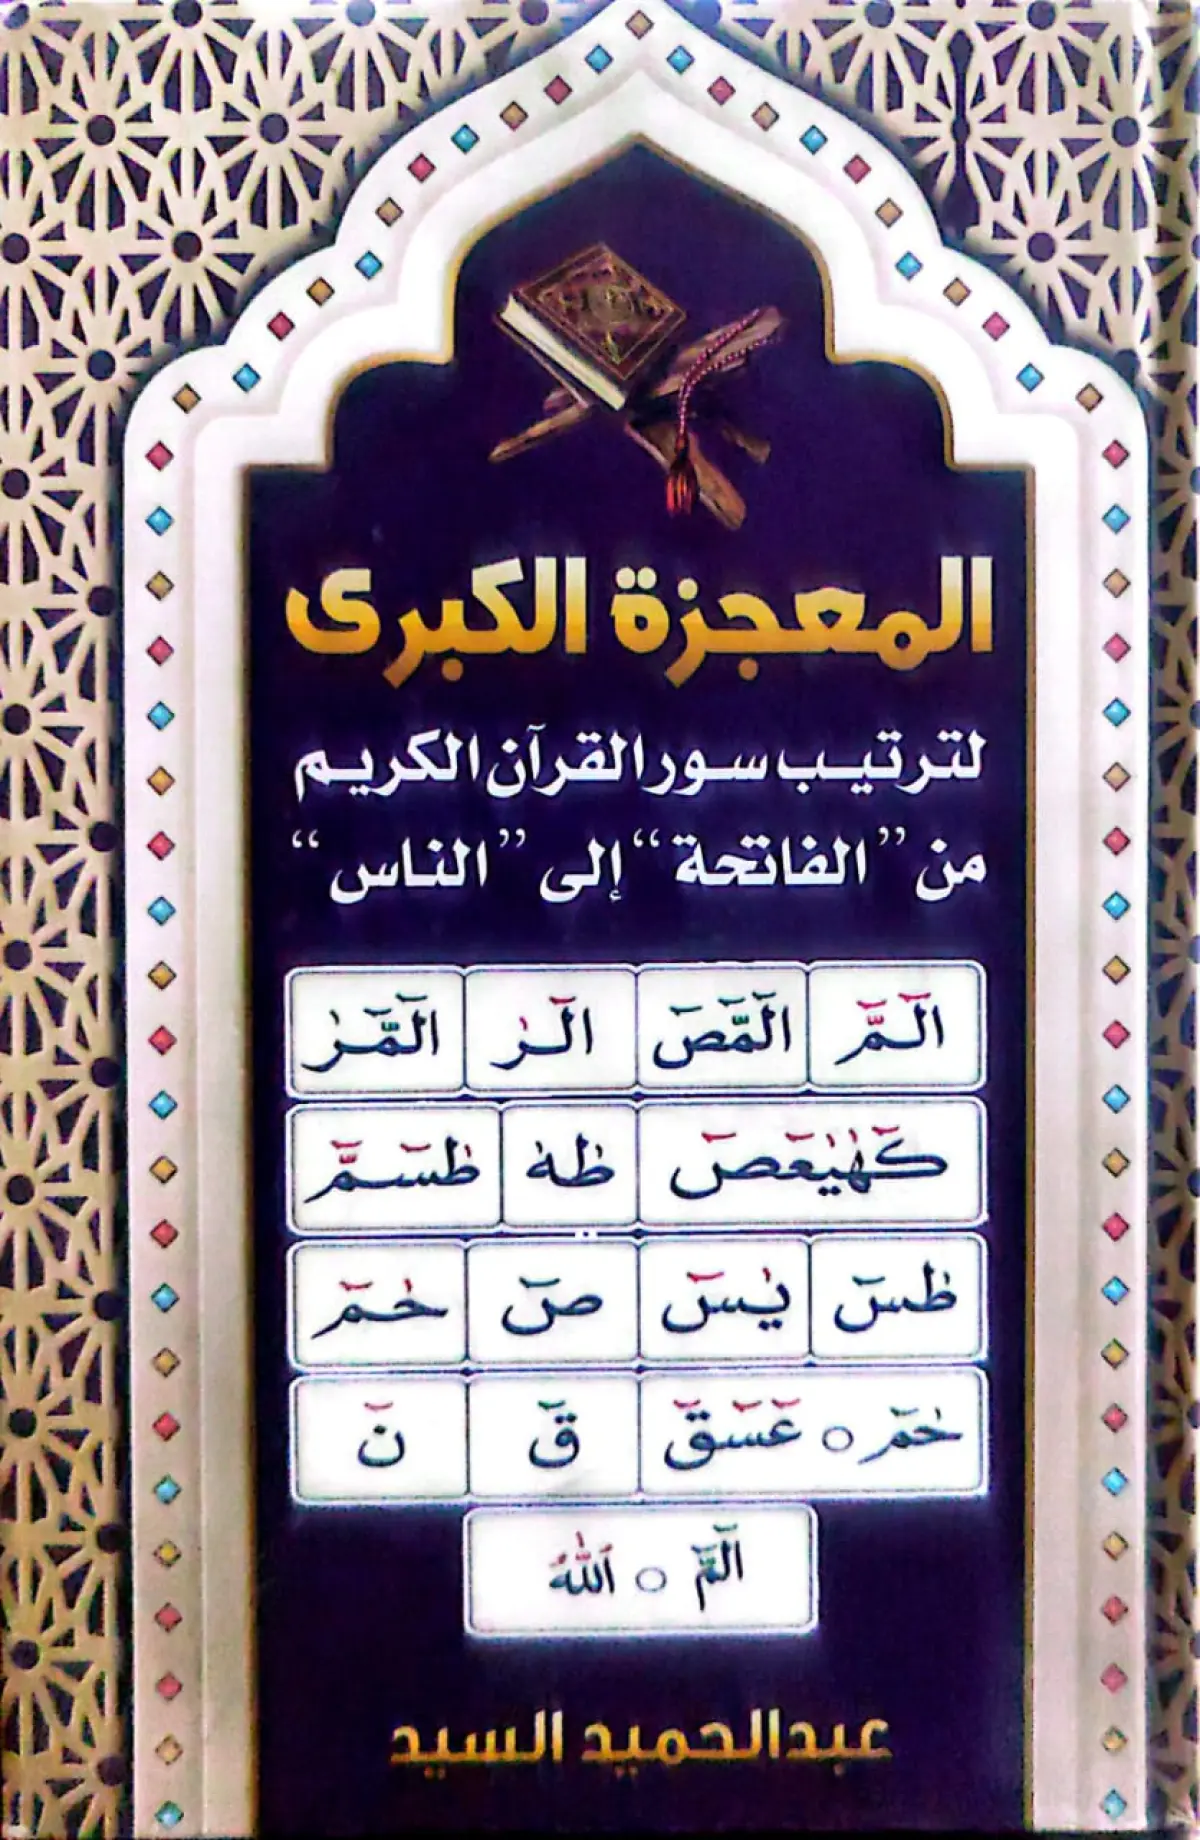 المعجزة الكبرى
لترتيب سور القرآن الكريم
من "الفاتحة" إلى "الناس"
الٓمٓ الٓمٓصٓ الٓرٰ الٓمٓرٰ
كٓهٰيٰعٓصٓ طٰهٰ طٰسٓمٓ
طٰسٓ يٰسٓ صٓ حٰمٓ
حٰمٓ ○ عٓسٓقٓ قٓ نٓ
الٓمٓ ○ اللّٰهُ
عبدالحميد السيد